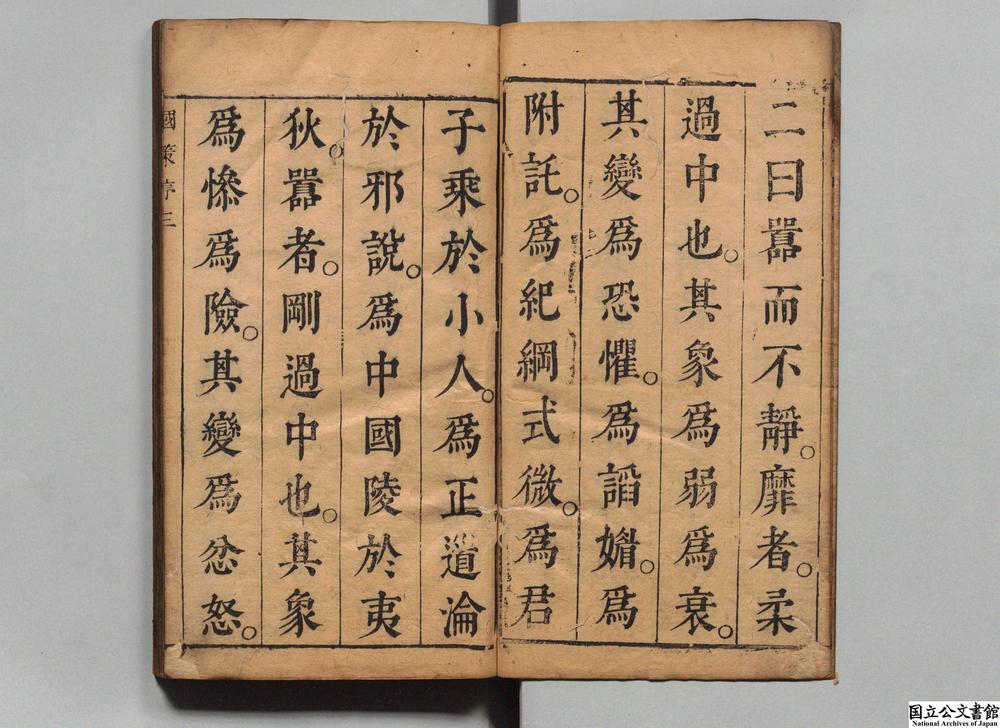 二曰囂而不靜。靡者。柔
過中也。其象爲弱爲衰。
其變爲恐懼。爲諂媚。爲
附託。爲紀綱式微。爲君
子乘於小人。爲正道淪
於邪說。爲中國陵於夷
狄。囂者。剛過中也。其象
爲慘爲險。其變爲忿怒。
國策序三
国立公文書館
National Archives of Japan